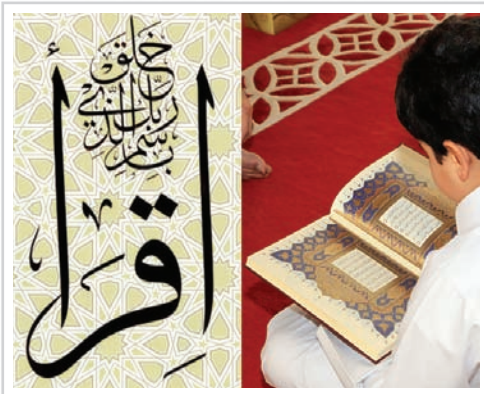 اِقْرَأ
بِاسْمِ
رَبِّكَ الَّذِي
خَلَقَ